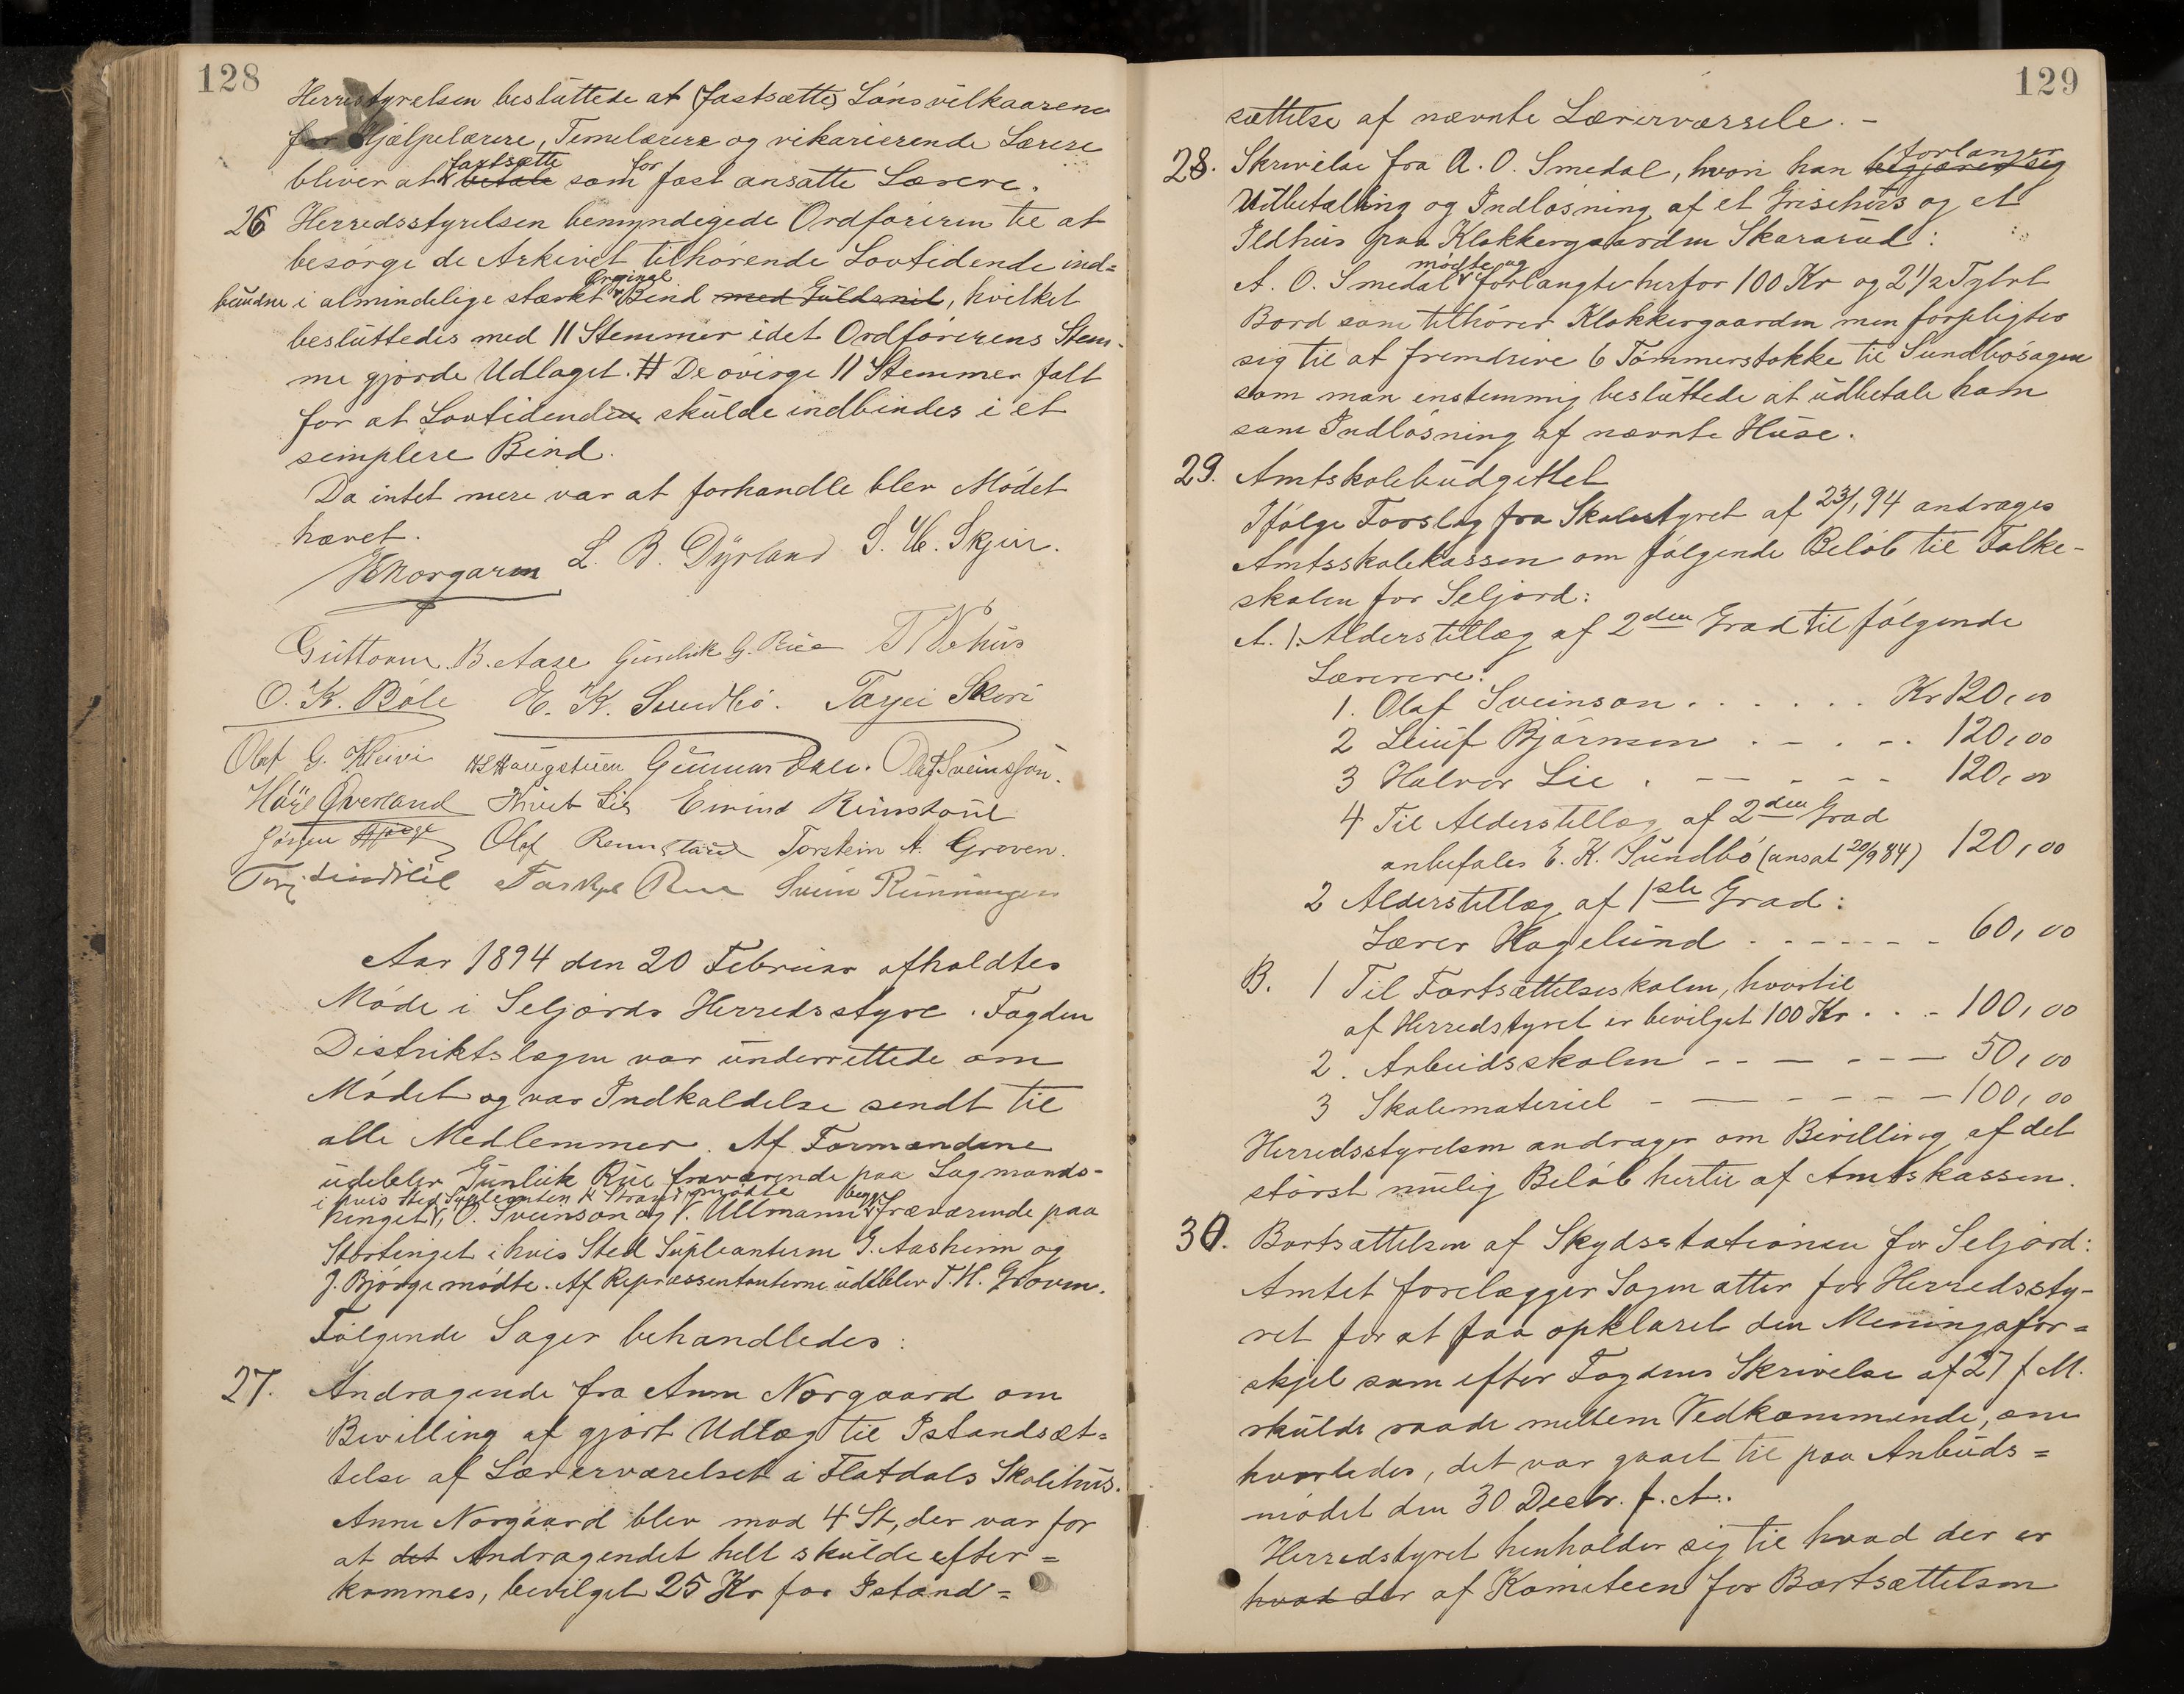 128
Herredstyrelsen besluttede at (fastsætte) Lønsvilkaarene
for Hjælpelærere, Timelærere og vikarierende Lærere
bliver at fastsætte betale som for fast ansatte Lærere.
26 Herredsstyrelsen bemyndigede Ordføreren til at
besørge de Arkivet tilhørende Lovtidende ind=
bundne i almindelige stærkt Orginal Bind med Guldsnit, hvilket
besluttedes med 11 Stemmer idet Ordførerens Stem-
me gjorde Udlaget. # De øvirge 11 Stemmer falt
for at Lovtidenden skulde indbindes i et
simplere Bind.
Da intet mere var at forhandle blev Mødet
hævet.
L. B. Dyrland S. H. Skjeir.
Guttorm B. Aase Gunleik G. Rue T Vehus
O. K. Bøle E. K. Sundbø. Tarjei Skori
Olaf G. Kleivi HS Haugstuen Gunnar Dale. Olaf Sveinsson.
Overland Knut Lie Eivind Rinstoul
Jørgen Bjørge Olaf Rennstaul Torstein A. Groven.
Torkjel Rue Svein Rünningen
Aar 1894 den 20 Februar afholdtes
Møde i Seljords Herredsstyre. Fogden
Distriktslægen var underrettede om
Mødet og var Indkaldelse sendt til
alle Medlemmer. Af Formændene
udeblev Gunleik Rue fraværende paa Lagmands-
i hvis Sted Supleanten K Strand mødte begge
tinget, O. Sveinson og V. Ullmann fraværende paa
Stortinget i hvis Sted Supleanterne G. Aasheim og
J. Bjørge mødte. Af Repræsentanterne udeblev T. H. Groven.
Følgende Sager behandledes:
27. Andragende fra Anne Norgaard om
Bevilling af gjort Udlæg til Istandsæt=
telse af Lærerværelset i Flatdals Skolehus.
Anne Norgaard blev mod 4 St, der var for
at det Andragendet helt skulde efter=
kommes, bevilget 25 Kr for Istand=
129
sættelse af nævnte Lærerværsele. -
28. Skrivelse fra A. O. Smedal, hvori han forlanger begjærer sig
Udbetalling og Indløsning af et Grisehus og et
Ildhus paa Klokkergaarden Skararud:
A. O. Smedal mødte og forlangte herfor 100 Kr og 2 1/2 Tylvt
Bord som tilhører Klokkergaarden men forpligter
sig til at fremdrive 6 Tømmerstokke til Sundbøsagen
som man enstemmig besluttede at udbetale ham
som Indløsning af nævnte Huse.
29. Amtskolebudgettet
Ifølge Forslag fra Skolestyret af 23/1 94 andrages
Amtsskolekassen om følgende Beløb til Folke-
skolen for Seljord:
A. 1. Alderstillæg af 2den Grad til følgende
Lærerere:
1. Olaf Sveinson . . . . . . Kr 120,00
2 Leiuf Bjørnson . - . -. 120,00
3 Halvor Lie . - - - - - 120,00
4 Til Alderstillæg af 2den Grad
anbefales E. K. Sundbø (ansat 20/9 84) 120,00
2 Alderstillæg af 1ste Grad:
Lærer Hagelund . - - - - - - 60,00
B. 1 Til Fortsættelseskolen, hvortil
af Herredstyret er bevilget 100 Kr . . . - 100,00
2. Arbeidsskolen - - - - - - 50,00
3 Skolemateriel - - - - - - - 100,00
Herredsstyrelsen andrager om Bevilling af det
størst mulig Beløb hertil af Amtskassen.
30. Bortsættelsen af Skydsstationen for Seljord:
Amtet forelægger Sagen atter for Herredssty-
ret for at faa opklaret den Meningsfor=
skjel som efter Fogdens Skrivelse af 27 f. M.
skulde raade mellem Vedkommende, om
hvorledes, det var gaaet til paa Anbuds=
mødet den 30 Decbr. f. A..
Herredstyret henholder sig til hvad der er
hvad der af Komiteen for Bortsættelsen